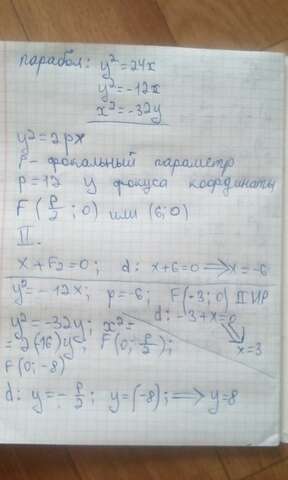 парабол: y²=24x
y²=-12x
x²=-32y
y²=2px
P- фокальный параметр
p=12 у фокуса координаты
F(p/2;0) или (6;0)
II.
x+F2=0; d: x+6=0⟹x=-6
y²=-12x; p=-6; F(-3;0) II ИР
d: -3+x=0
x=3
y²=-32y; x²=
=2(16)y; F(0;p/2);
F(0;-8)
d: y=-p/2; y=(-8);⟹y=8